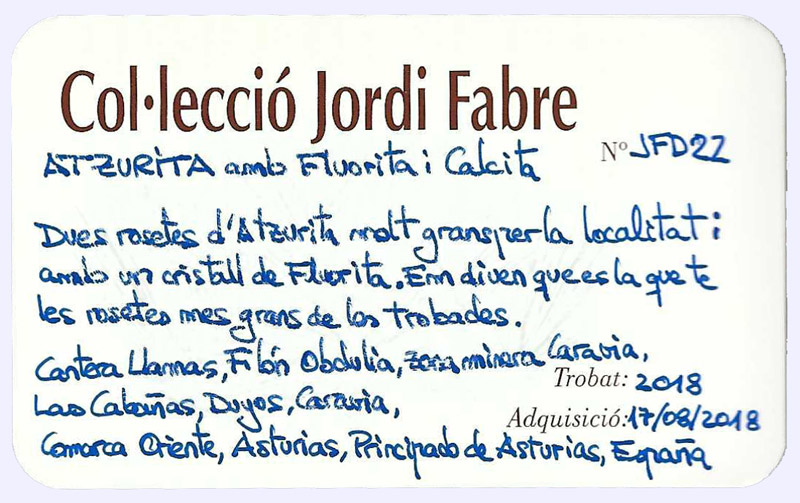 Col·lecció Jordi Fabre
ATZURITA amb Fluorita i Calcita Nº JFD22
Dues rosetes d'Atzurita molt grans per la localitat i
amb un cristall de Fluorita. Em diven que es la que te
les rosetes mes grans de los trobades.
Cantera Llamas, Filón Obdulia, zona minera Caravia,
Trobat: 2018
Las Cabañas, Duyos, Caravia,
Adquisició: 17/08/2018
Comarca Oriente, Asturias, Principado de Asturias, España